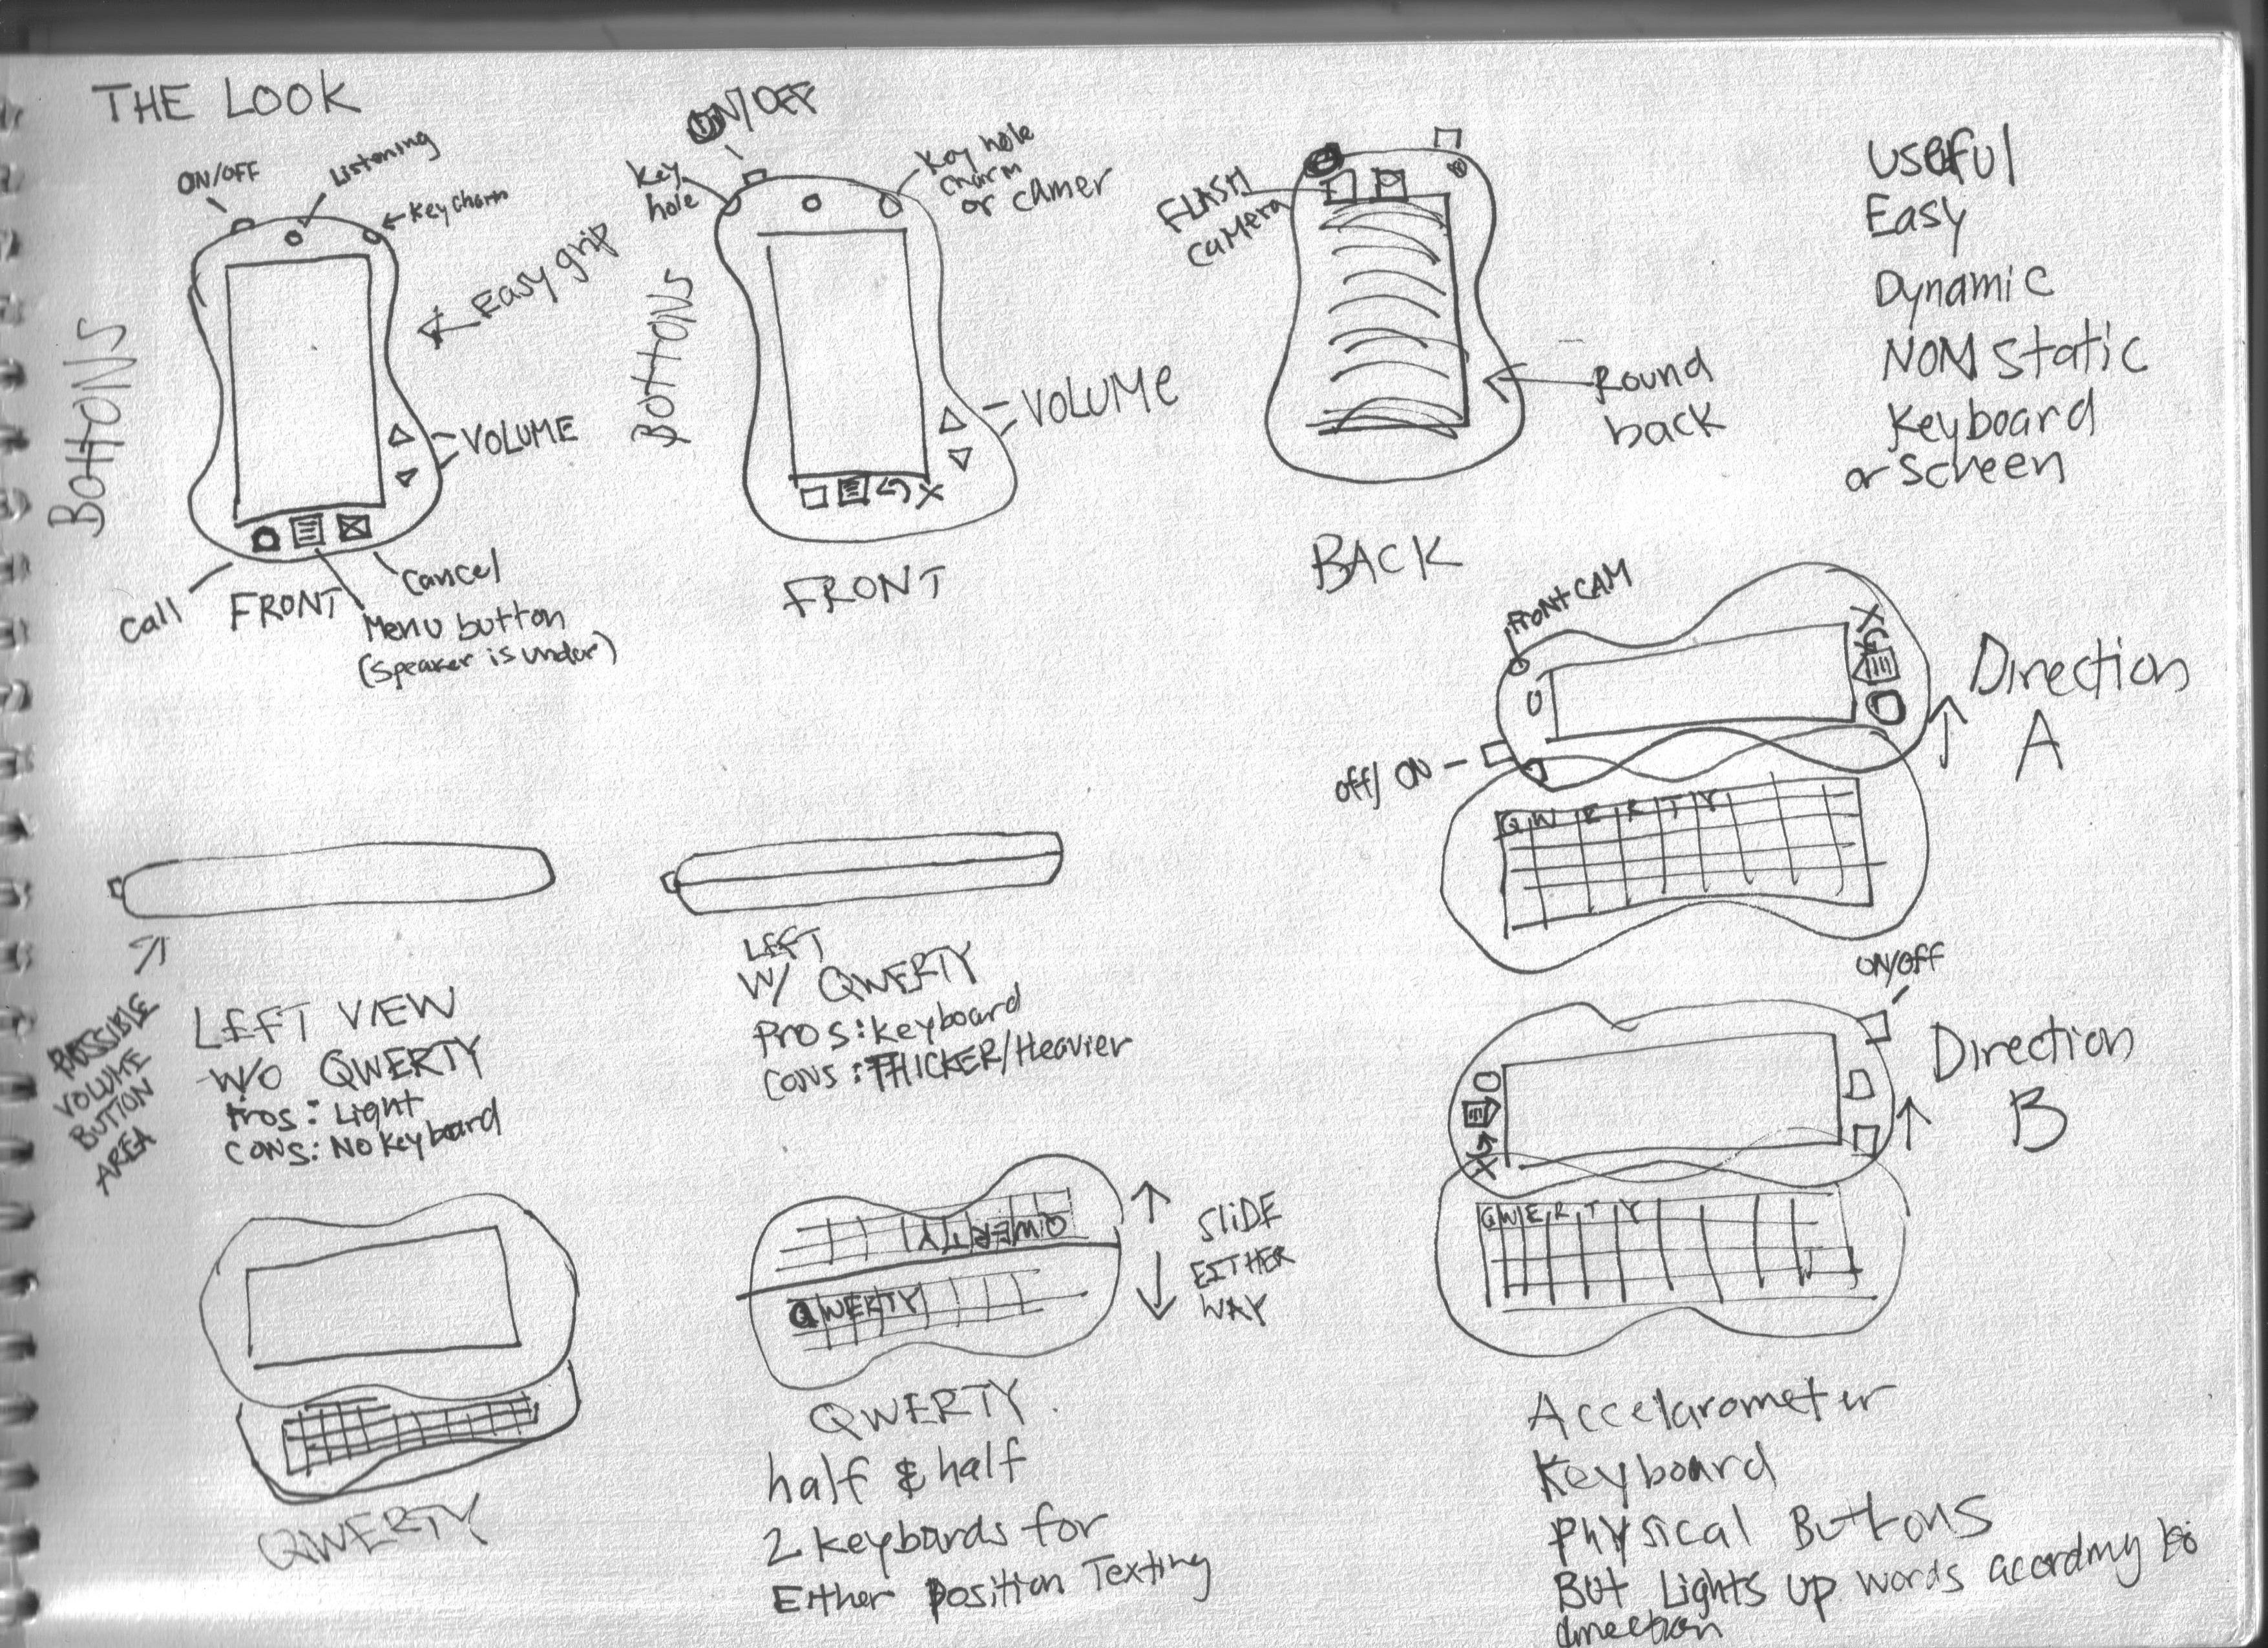 THE LOOK
ON/OFF
Listening
Key charm
Easy grip
BOttONS
VOLUME
Call
FRONT
Cancel
Menu button
(Speaker is under)
ON/OFF
Key
hole
Key hole
charm
or camer
BOttONS
VOLUME
FRONT
FLASH
CAMERA
Round
back
BACK
Useful
Easy
Dynamic
NON Static
Keyboard
or Screen
FRONT CAM
X
Off/ON
Q W E R T Y
Direction
A
POSSIBLE
VOLUME
BUTTON
AREA
LEFT VIEW
W/O QWERTY
Pros: Light
CONS: NO Keyboard
LEFT
W/ QWERTY
Pros: Keyboard
CONS: THICKER/Heavier
ON/OFF
X
Q W E R T Y
Direction
B
QWERTY
QWERTY
QWERTY
SLIDE
EITHER
WAY
QWERTY
half & half
2 Keyboards for
Either Position Texting
Accelarometer
Keyboard
Physical Buttons
But Lights up words acording to
direction